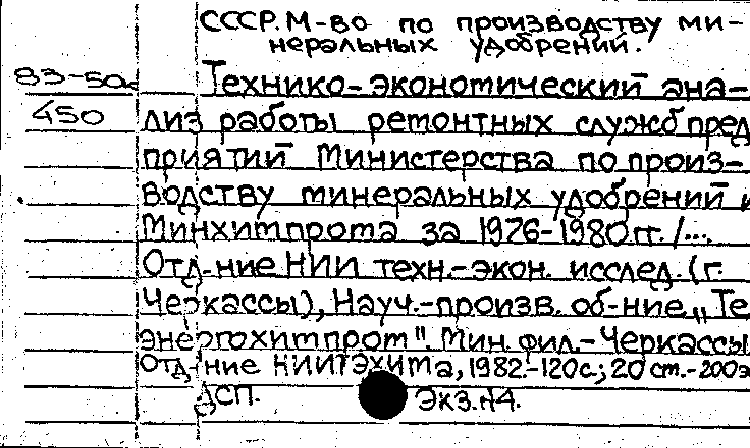 СССР. М-во по производству ми-
неральных удобрений.
83-50
Технико-экономический ана-
450
лиз работы ремонтных служб пред
приятий Министерства по произ-
водству минеральных удобрений и
Минхимпрома за 1976-1980 гг. /...
Отд-ние НИИ техн.-экон. исслед. (г.
Черкассы), Науч.-произв. об-ние „Те
энергохимпром". Мин. фил.- Черкассы
Отд-ние НИИТЭХИМа, 1982.-120с.; 20 см.-200э
ДСП. Экз.№4.